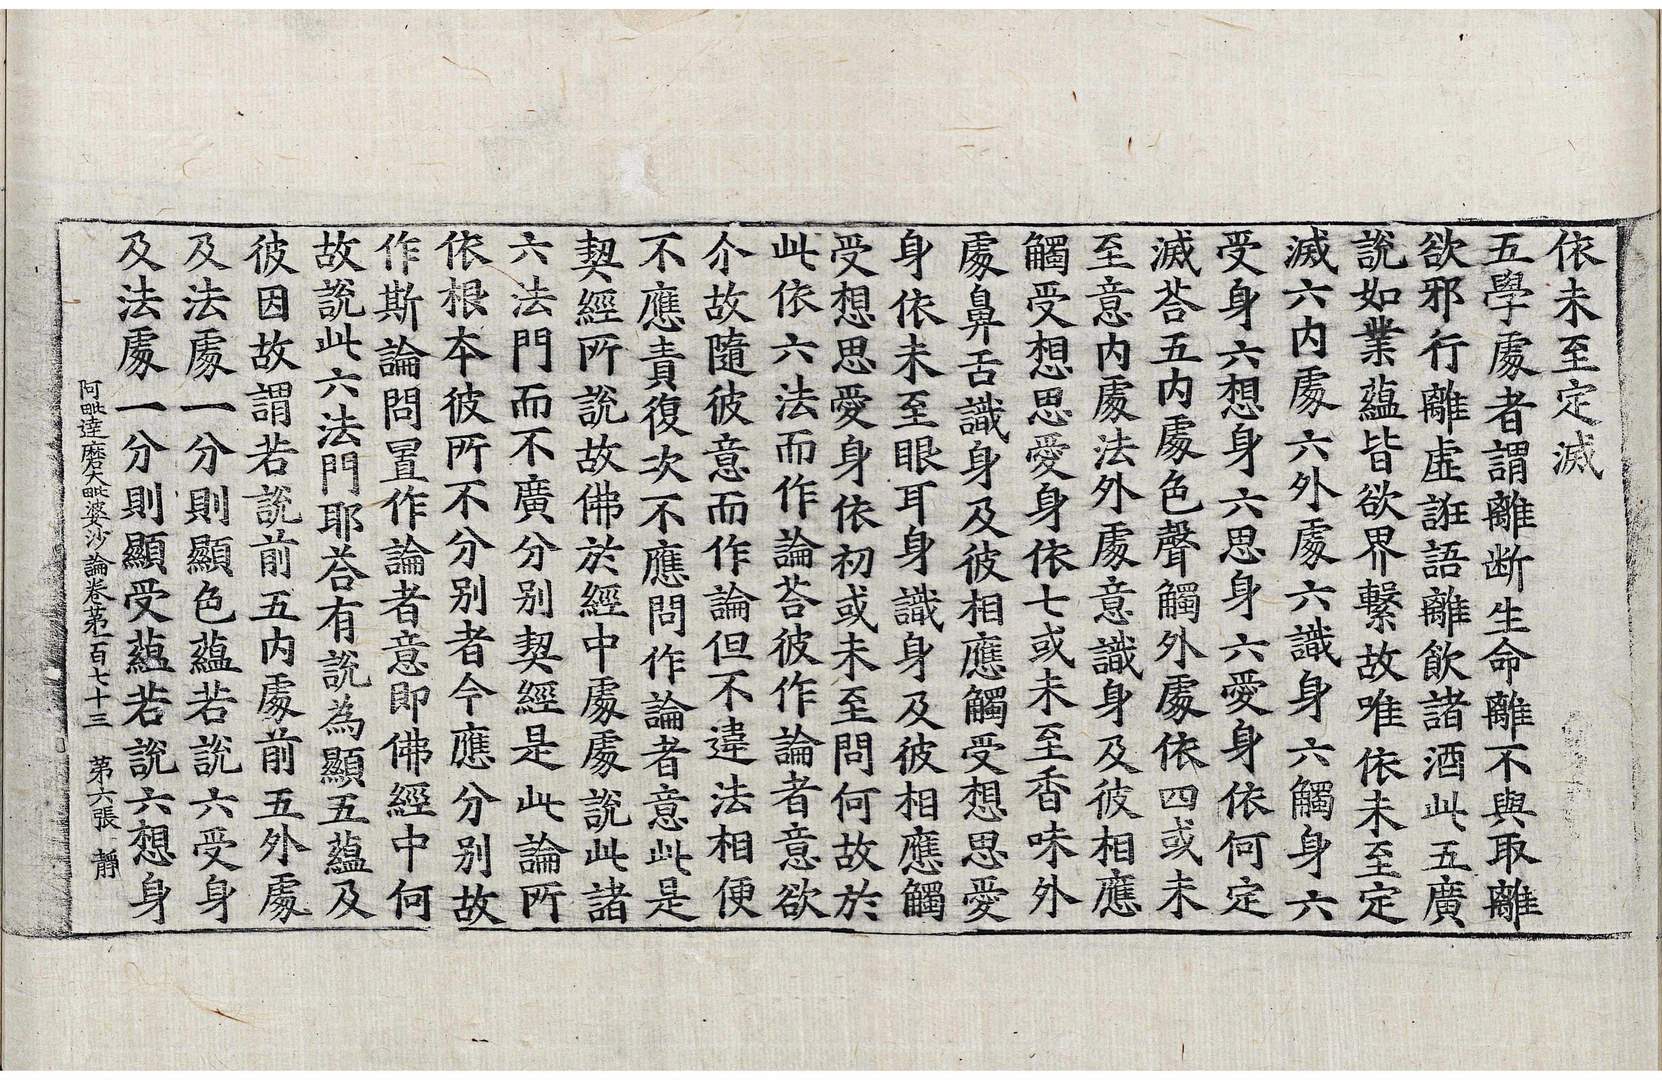 依未至定滅
五學處者謂離断生命離不與取離
欲邪行離虛誑語離飮諸酒此五廣
說如業蘊皆欲界繫故唯依未至定
滅六内處六外處六識身六觸身六
受身六想身六思身六愛身依何定
滅荅五内處色聲觸外處依四或未
至意内處法外處意識身及彼相應
觸受想思愛身依七或未至香味外
處鼻舌識身及彼相應觸受想思愛
身依未至眼耳身識身及彼相應觸
受想思愛身依初或未至問何故於
此依六法而作論荅彼作論者意欲
尒故隨彼意而作論但不違法相便
不應責復次不應問作論者意此是
契經所說故佛於經中處處說此諸
六法門而不廣分別契經是此論所
依根本彼所不分別者今應分別故
作斯論問置作論者意即佛經中何
故說此六法門耶荅有說為顯五蘊及
彼因故謂若說前五内處前五外處
及法處一分則顯色蘊若說六受身
及法處一分則顯受蘊若說六想身
阿毗達磨大毗婆沙論卷苐一百七十三 第六張 靜